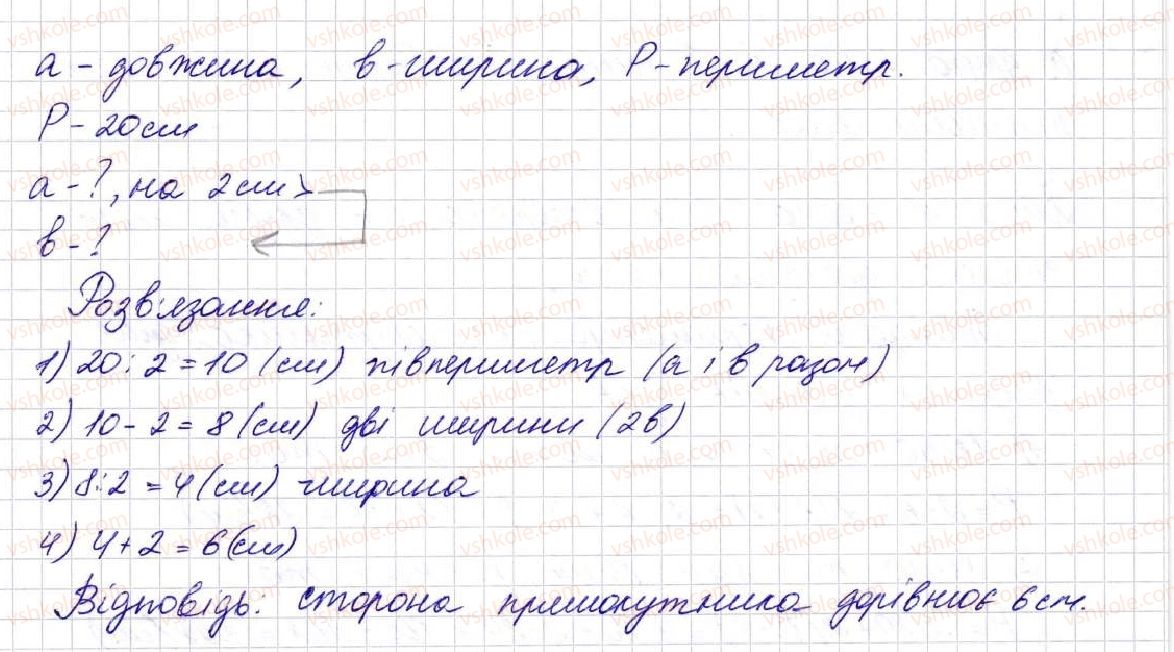 а - довжина, в - ширина, Р - периметр.
Р - 20 см
а - ?, на 2 см >
в - ?
Розв'язання:
1) 20 : 2 = 10 (см) півпериметр (а і в разом)
2) 10 - 2 = 8 (см) дві ширини (2в)
3) 8 : 2 = 4 (см) ширина
4) 4 + 2 = 6 (см)
Відповідь: сторона прямокутника дорівнює 6 см.
vshkole.com